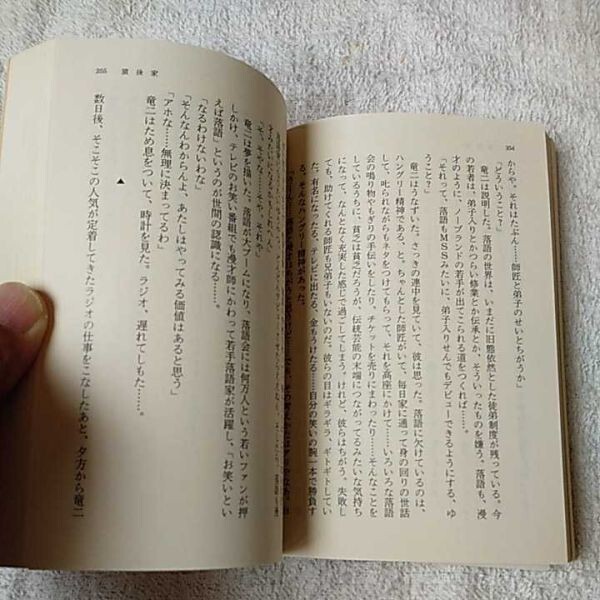 354
からや。それはたぶん……師匠と弟子のせいとちがうか」
「どういうこと?」
竜二は説明した。落語の世界は、いまだに旧態依然とした徒弟制度が残っている。今
の若者は、弟子入りとかつらい修業とか伝承とか、そういったものを嫌う。落語も、漫
才のように、ノーブランドの若手が出てこられる道をつくれば……。
「それって、落語もMSSみたいに、弟子入りせんでもデビューできるようにする、ゆ
うこと?」
竜二はうなずいた。さっきの連中を見ていて、彼は思った。落語に欠けているのは、
ハングリー精神である、と。ちゃんとした師匠がいて、毎日家に通って身の回りの世話
して、叱られながらもネタをつけてもらい、それを高座にかけて……いろいろな落語
会の鳴り物やもぎりの手伝いをしたり、チケットを売りにまわったり……そんなことを
しているうちに、貧乏は貧乏だろうが、伝統芸能の末端につながってるみたいな気持ち
になって、なんとなく充実した感じで過ごしてしまう。けれど、彼らはちがう。失敗し
ても、助けてくれる師匠も兄弟子もいないのだ。彼らの目はギラギラ、ギトギトしてい
た。有名になったる、テレビに出たる、金もうけたる……自分の笑いの腕一本で勝負す
る、そんなハングリー精神があった。
355 猿後家
「そ、そやな……そや、それや」
竜二は夢を描いた。落語が大ブームになり、落語会には何万人という若いファンが押
しかけ、テレビのお笑い番組でも漫才師にかわって若手落語家が活躍し、「お笑いとい
えば落語」というのが世間の認識になる……。
「なるわけないわな」
「そんなんわからんよ。あたしはやってみる価値はあると思う」
「アホな……無理に決まってるわ」
竜二はため息をついて、時計を見た。ラジオ、遅れてしもた……。
▲
数日後、そこそこの人気が定着してきたラジオの仕事をこなしたあと、夕方から竜二